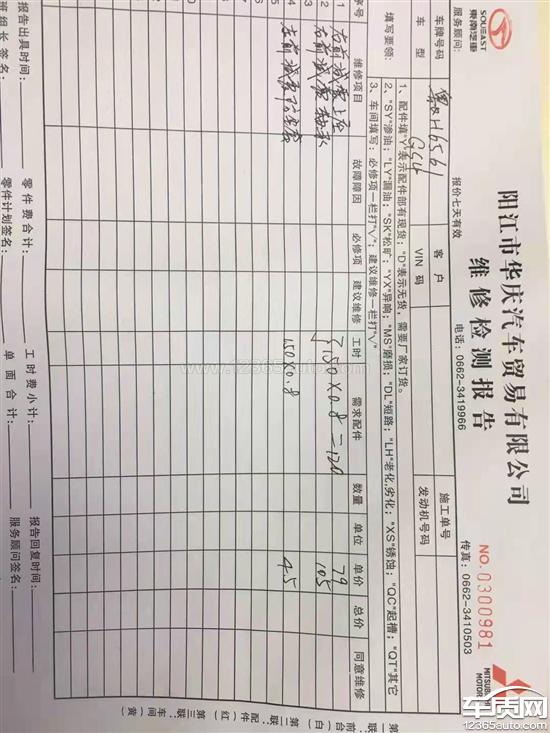 SOUEAST
東南汽車
阳江市华庆汽车贸易有限公司
维修检测报告
MITSUBISHI
MOTOR
NO.0300981
服务顾问:
报价七天有效
电话: 0662-3419966
传真: 0662-3410503
车牌号码
客户
施工单号
车型
VIN 码
发动机号码
填写要领:
1、配件填"Y"表示配件部有现货; "D"表示无货, 需要厂家订货。
2、"SY"渗油; "LY"漏油; "SK"松旷; "YX"异响; "MS"磨损; "DL"短路; "LH"老化,劣化; "XS"锈蚀; "QC"起槽; "QT"其它
3、车间填写: 必修项一栏打"√"; 建议维修一栏打"√"
序号 维修项目 故障障因 必修项 建议维修 工时 需求配件 数量 单位 单价 总价 同意维修
1 右前减震上座 79
2 右前减震轴承 150×0.8=120 105
3
4 左前减震防尘套 150×0.8 45
5
6
7
8
9
10
零件费合计:
工时费小计:
报告出具时间:
单面合计:
报告回复时间:
班组长签名:
零件计划签名:
服务顾问签名:
第一联: 前台(白)
第二联: 配件(红)
第三联: 车间(黄)
www.12365auto.com
车质网
12365auto.com